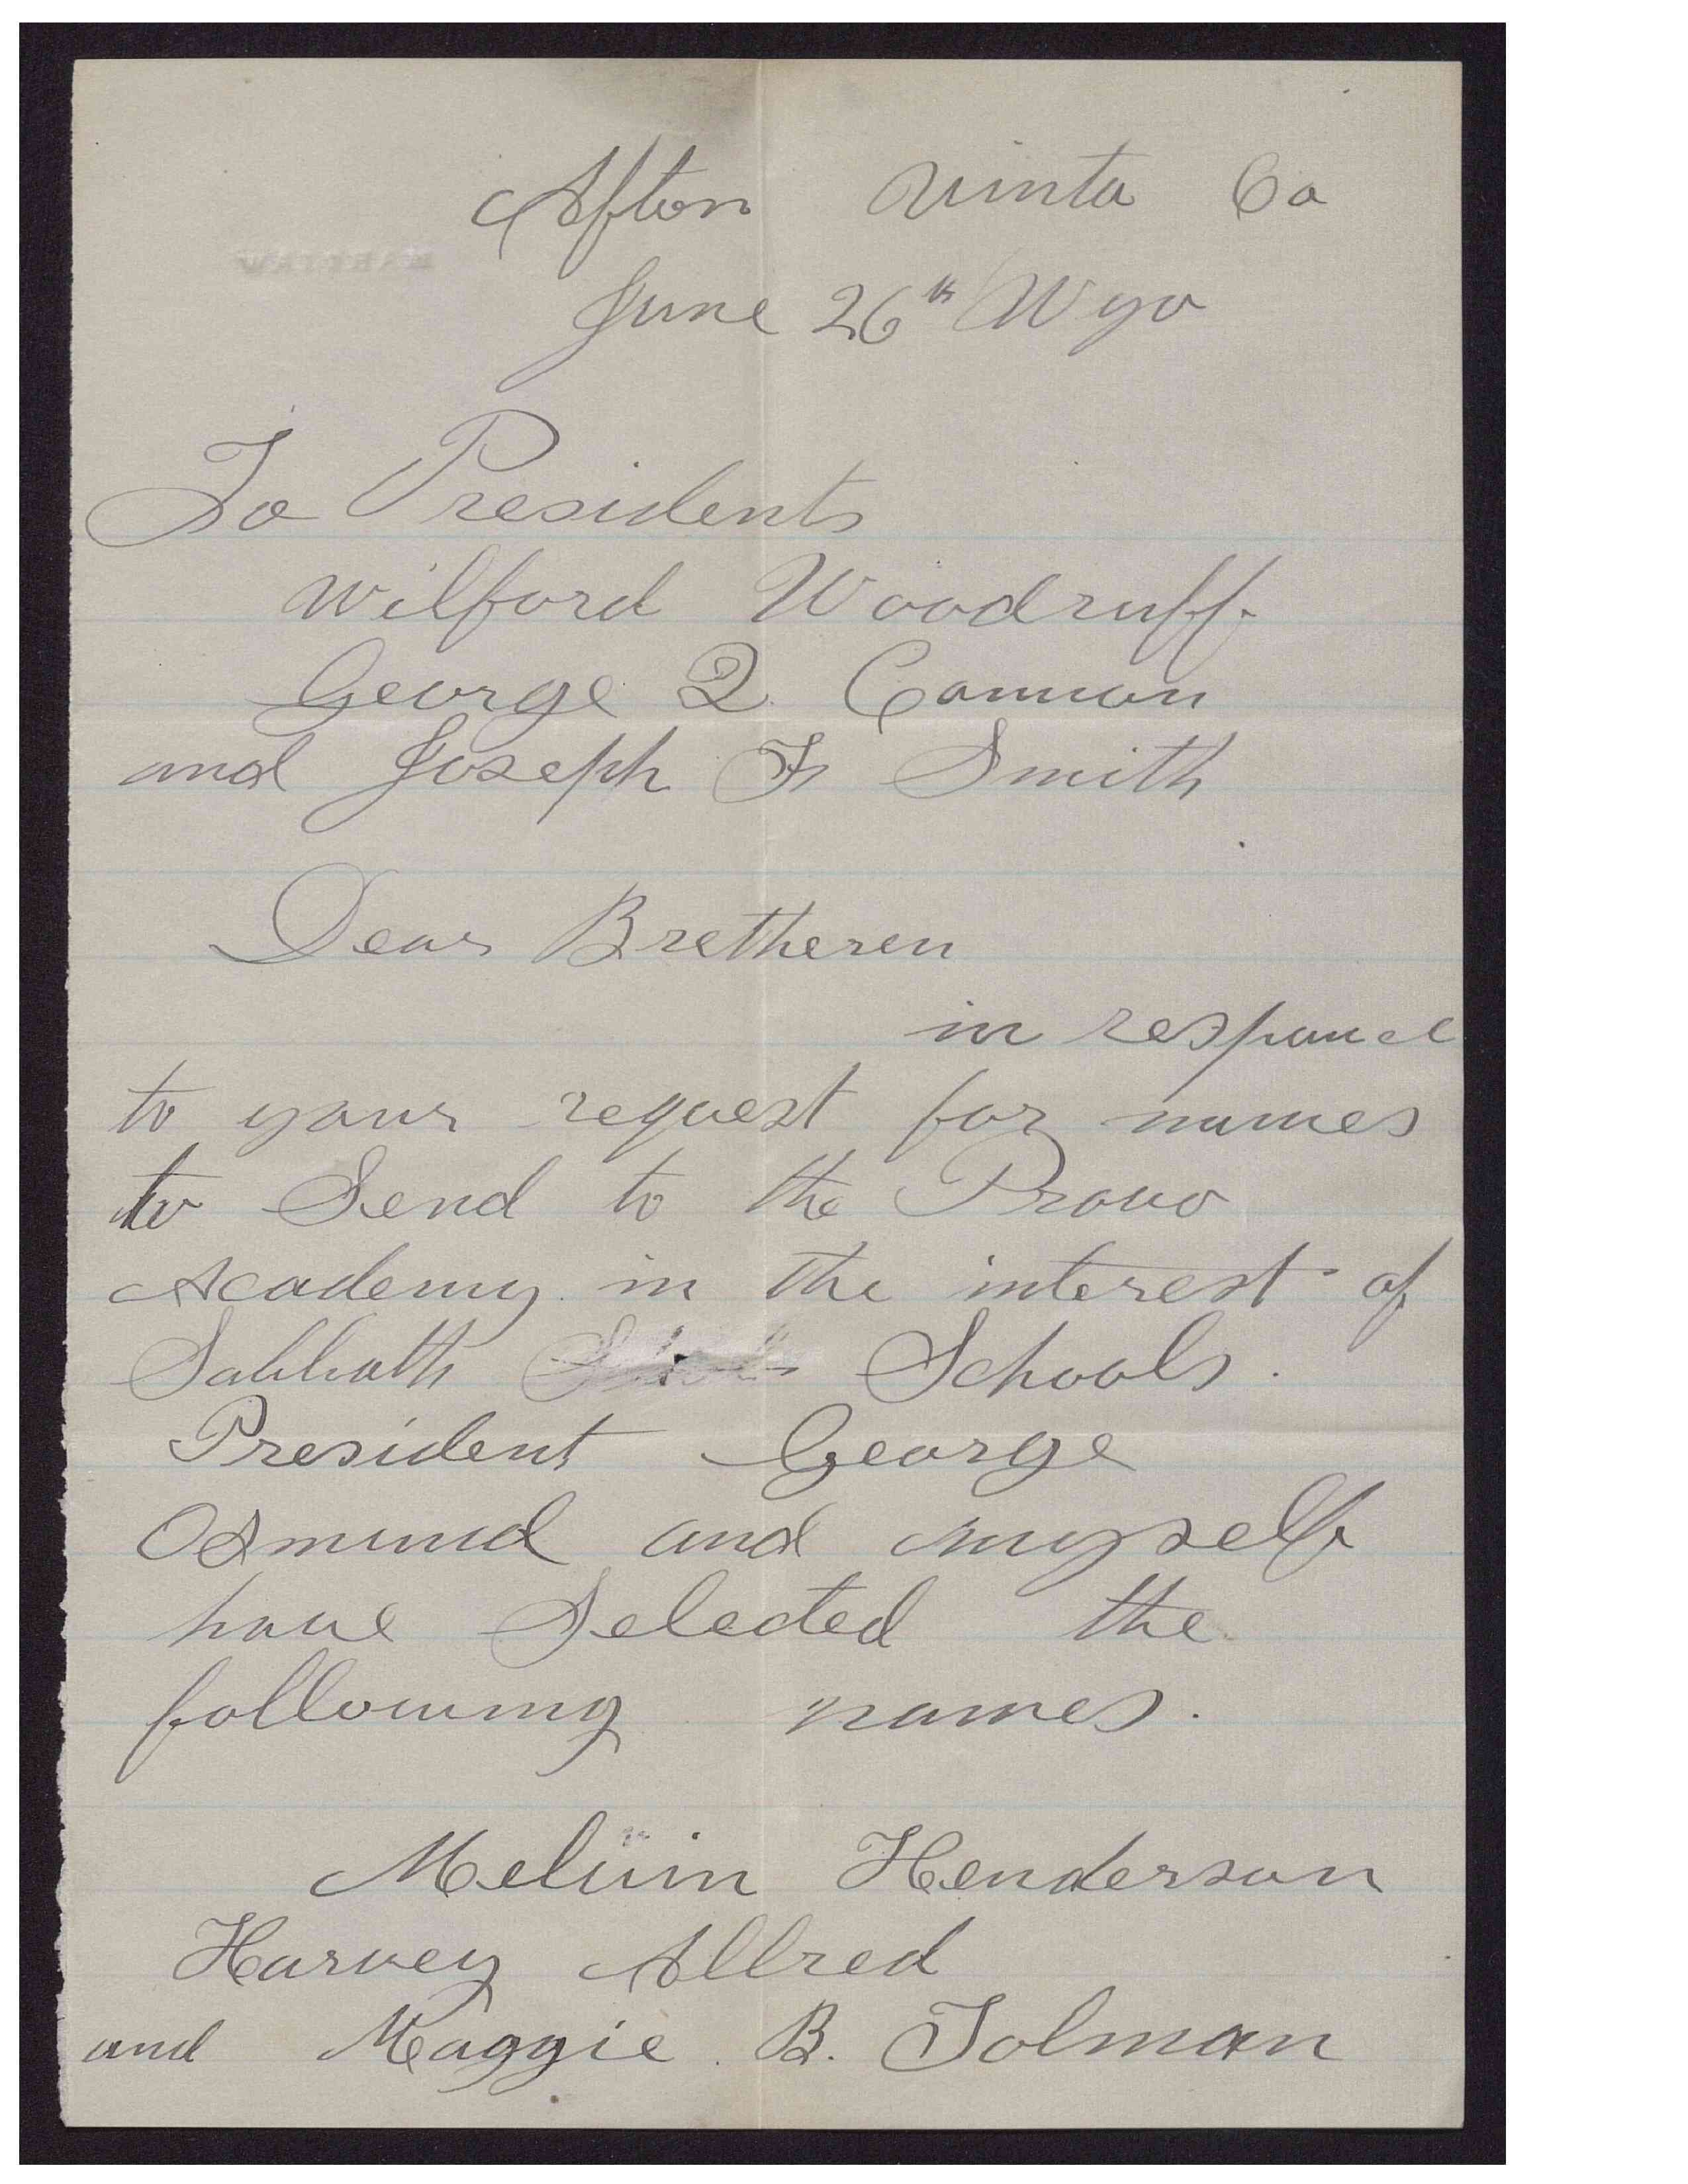 Afton Uinta Co
June 26th Wyo
To Presidents
Wilford Woodruff
George Q Cannon
and Joseph F Smith
Dear Bretheren
in responce
to your request for names
to Send to the Provo
Academy in the interest of
Sabbath Schools.
President George
Osmund and myself
have Selected the
following names.
Melvin Henderson
Harvey Allred
and Maggie B. Tolman